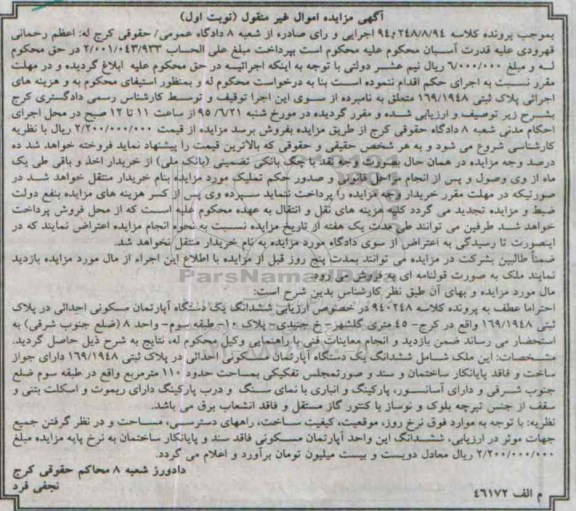 آگهی مزایده اموال غیر منقول (نوبت اول)
بموجب پرونده کلاسه ۹۴،۲۴۸/۸/۹۴ اجرایی و رای صادره از شعبه ۸ دادگاه عمومی/ حقوقی کرج له: اعظم رحمانی
قهرودی علیه قدرت آسبان محکوم علیه محکوم است بپرداخت مبلغ علی الحساب ۲/۰۰۱/۰۴۳/۹۳۳ در حق محکوم
له و مبلغ ۶/۰۰۰/۰۰۰ ریال نیم عشر دولتی با توجه به اینکه اجرائیه در حق محکوم علیه ابلاغ گردیده و در مهلت
مقرر نسبت به اجرای حکم اقدام ننموده است بنا به درخواست محکوم له و بمنظور استیفای محکوم به و هزینه های
اجرائی پلاک ثبتی ۱۶۹/۱۹۴۸ متعلق به نامبرده از سوی این اجرا توقیف و توسط کارشناس رسمی دادگستری کرج
بشرح زیر توصیف و ارزیابی شده و مقرر گردیده در مورخ شنبه ۹۵/۶/۲۱ از ساعت ۱۱ تا ۱۲ صبح در محل اجرای
احکام مدنی شعبه ۸ دادگاه حقوقی کرج از طریق مزایده بفروش برسد مزایده از قیمت ۲/۲۰۰/۰۰۰/۰۰۰ ریال با نظریه
کارشناسی شروع می شود و به هر شخص حقیقی و حقوقی که بالاترین قیمت را پیشنهاد نماید فروخته خواهد شد ده
درصد وجه مزایده در همان حال بصورت وجه نقد یا چک بانکی تضمینی (بانک ملی) از خریدار اخذ و باقی طی یک
ماه از وی وصول و پس از انجام مراحل قانونی و صدور حکم تملیک مورد مزایده بنام خریدار منتقل خواهد شد در
صورتیکه در مهلت مقرر خریدار وجه مزایده را پرداخت ننماید سپرده وی پس از کسر هزینه های مزایده بنفع دولت
ضبط و مزایده تجدید می گردد کلیه هزینه های نقل و انتقال به عهده محکوم علیه است که از محل فروش پرداخت
خواهد شد طرفین می توانند طی مدت یک هفته از تاریخ مزایده نسبت به نحوه انجام مزایده اعتراض نمایند که در
اینصورت تا رسیدگی به اعتراض از سوی دادگاه مورد مزایده به نام خریدار منتقل نخواهد شد.
ضمناً طالبین بشرکت در مزایده می توانند بمدت پنج روز قبل از مزایده با اطلاع این اجراء از مال مورد مزایده بازدید
نمایند ملک به صورت قولنامه ای به فروش می رود.
ParsNamadData
مال مورد مزایده و بهای آن طبق نظر کارشناس بدین شرح است:
احتراما عطف به پرونده کلاسه ۹۴۰۲۴۸ در خصوص ارزیابی ششدانگ یک دستگاه آپارتمان مسکونی احداثی در پلاک
ثبتی ۱۶۹/۱۹۴۸ واقع در کرج- ۴۵ متری گلشهر- خ جنیدی- پلاک ۱۰- طبقه سوم- واحد ۸ (ضلع جنوب شرقی) به
استحضار می رساند ضمن بازدید و انجام معاینات فنی با راهنمایی وکیل محکوم له، نتایج به شرح ذیل حاصل گردید.
مشخصات: این ملک شامل ششدانگ یک دستگاه آپارتمان مسکونی احداثی در پلاک ثبتی ۱۶۹/۱۹۴۸ دارای جواز
ساخت و فاقد پایانکار ساختمان و سند و صورتمجلس تفکیکی بمساحت حدود ۱۱۰ مترمربع واقع در طبقه سوم ضلع
جنوب شرقی و دارای آسانسور، پارکینگ و انباری با نمای سنگ و درب پارکینگ دارای ریموت و اسکلت بتنی و
سقف از جنس تیرچه بلوک و نوساز با کنتور گاز مستقل و فاقد انشعاب برق می باشد.
نظریه: با توجه به موارد فوق نرخ روز، موقعیت، کیفیت ساخت، راههای دسترسی، مساحت و در نظر گرفتن جمیع
جهات موثر در ارزیابی، ششدانگ این واحد آپارتمان مسکونی فاقد سند و پایانکار ساختمان به نرخ پایه مزایده مبلغ
۲/۲۰۰/۰۰۰/۰۰۰ ریال معادل دویست و بیست میلیون تومان برآورد و اعلام می گردد.
دادورز شعبه ۸ محاکم حقوقی کرج
نجفی فرد
م الف ۴۶۱۷۲